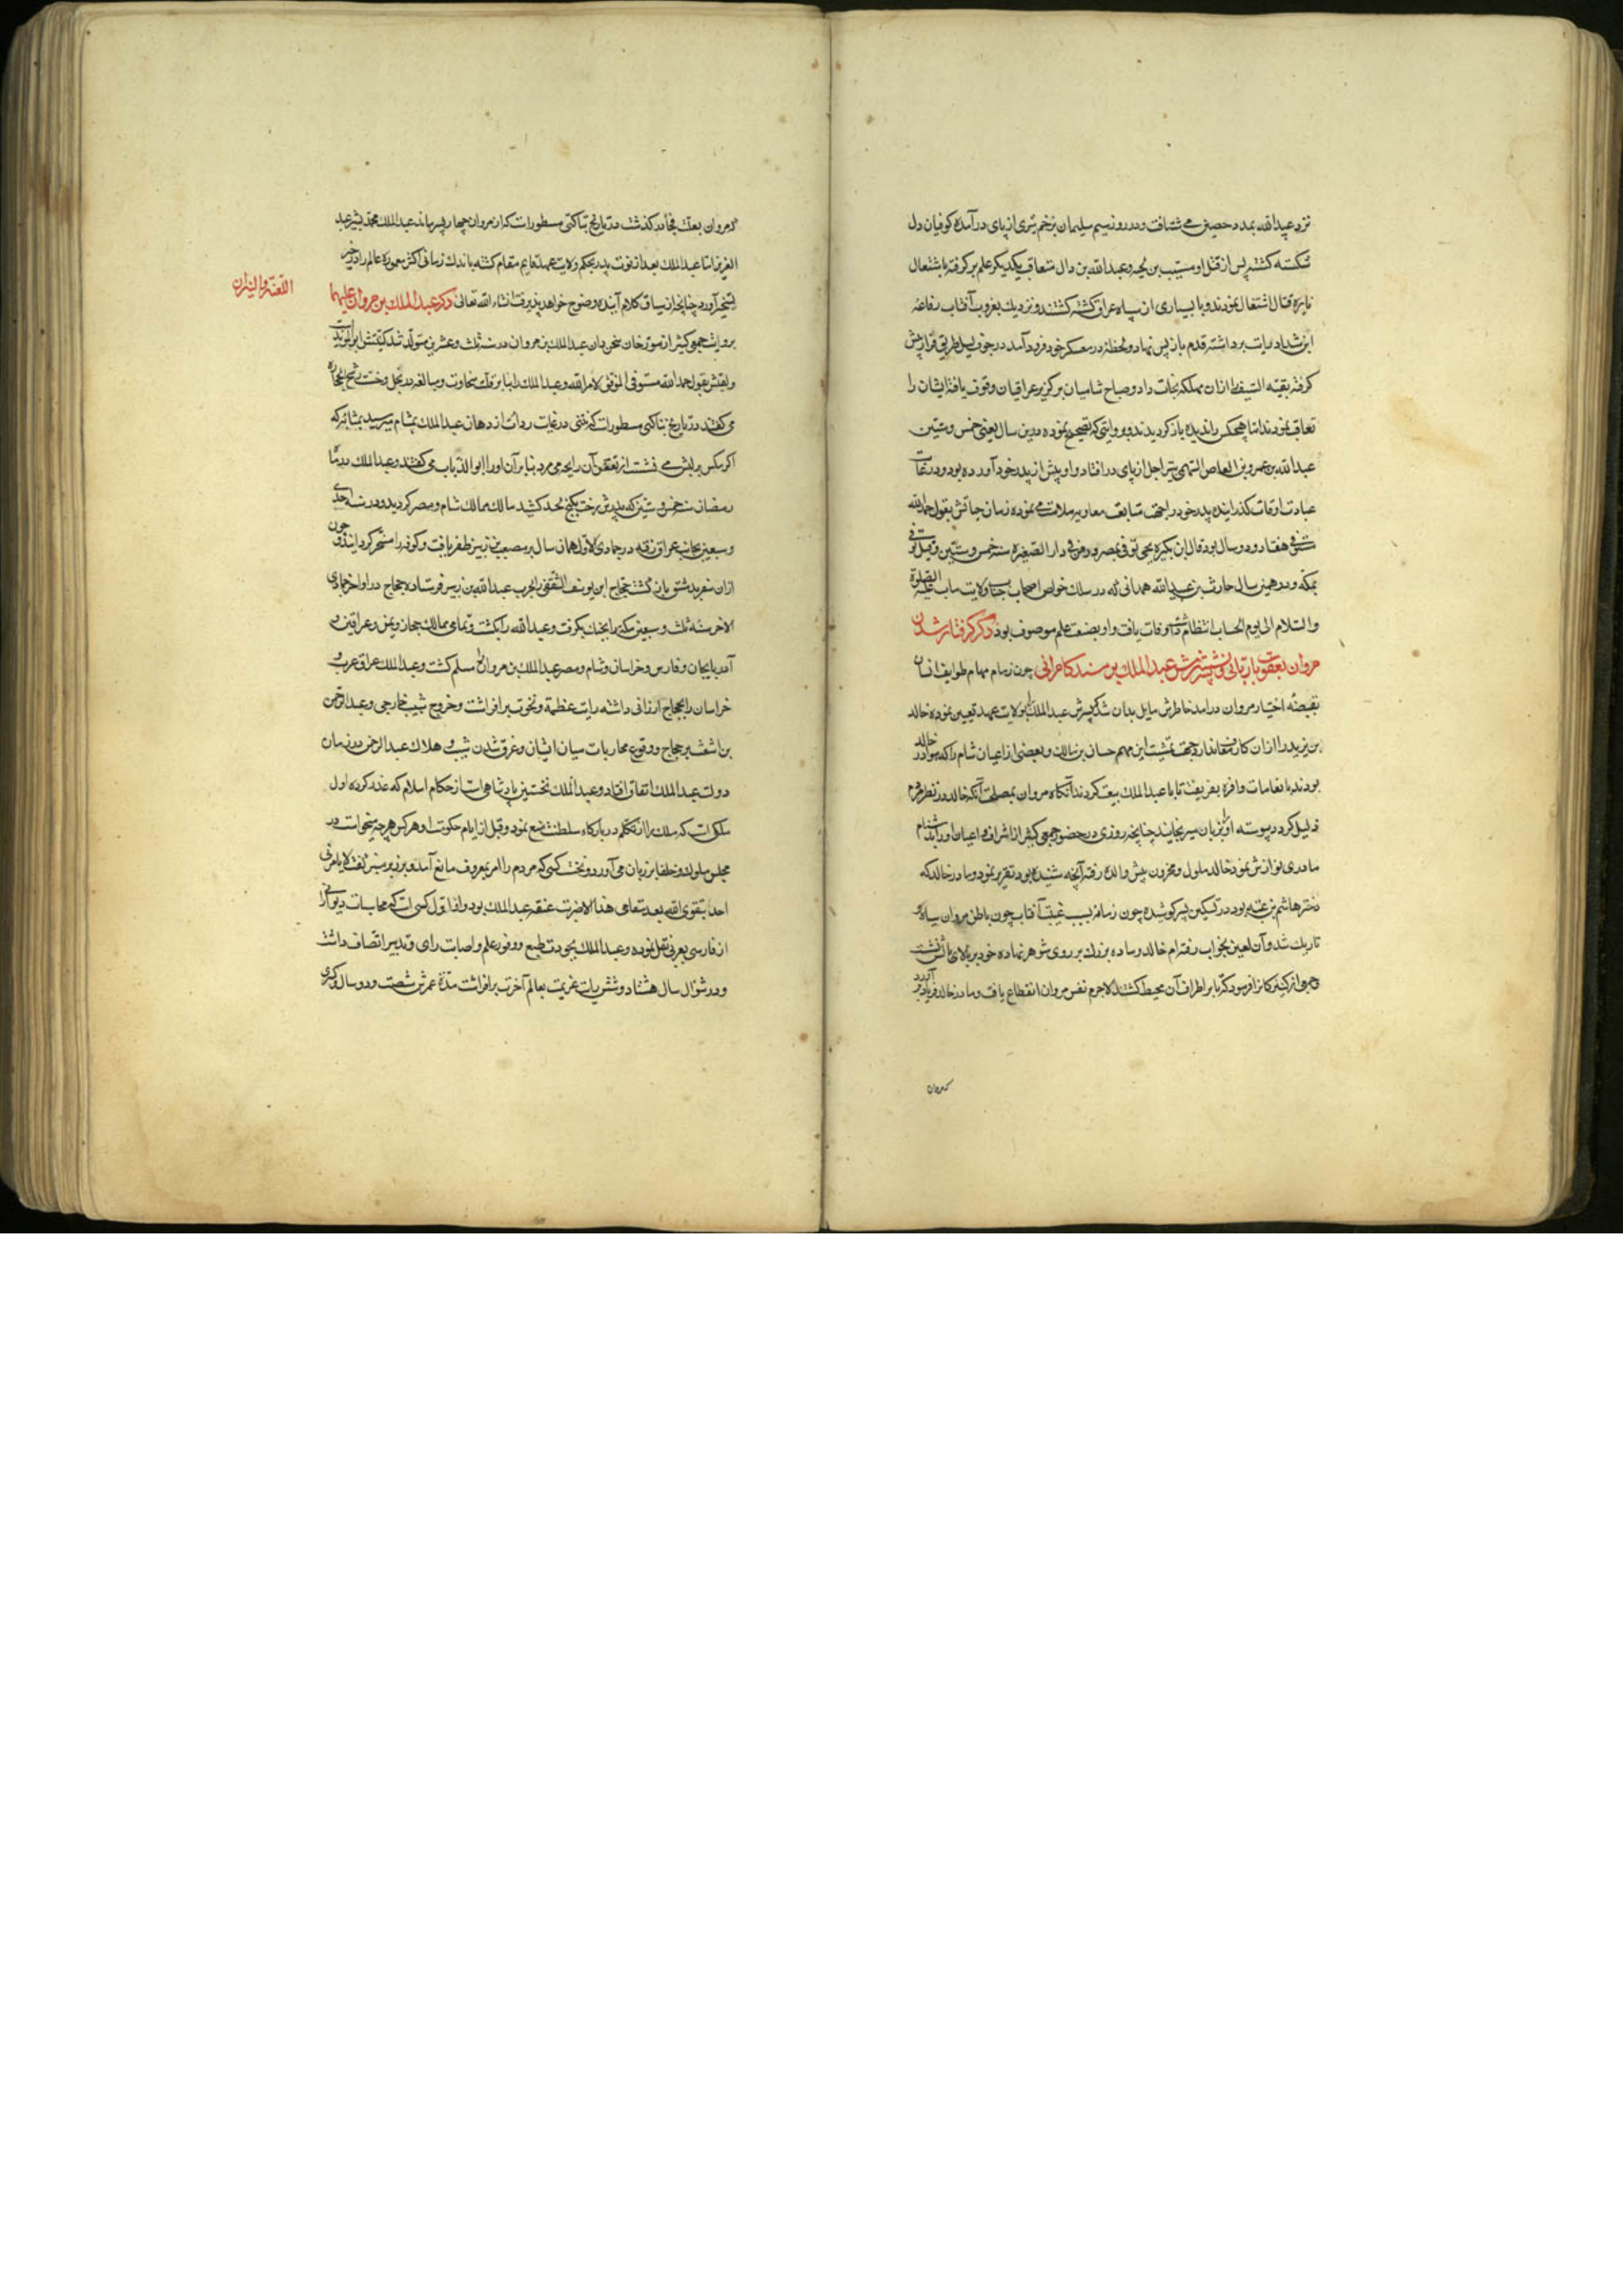 نزد عبیدالله بمدد حصین می شتافت ودر روز سیم سلیمان بزخم تیری از پای درآمده کوفیان دل
شکسته کشتند پس از قتل او مسیب بن نجبه وعبدالله بن وال متعاقب یکدیکر علم برکرفته باشتعال
نایره قتال اشتغال نمودند وبا بسیاری از سپاه عراق کشته کشتند ونزدیک بغروب آفتاب رفاعه
ابن شداد رایت برداشته قدم باز پس نهاد ولحظه در معسکر خود فرود آمد در جوف لیل طریق فرار پیش
کرفته بقیة السیف را ازان مهلکه نجات داد وصباح شامیان بر کریز عراقیان وقوف یافته ایشان را
تعاقب نمودند اما هیچکس را ندیده باز کردیدند وبروایتی که تصحیح نموده درین سال یعنی خمس وستین
عبدالله بن عمرو بن العاص السهمی بتیر اجل از پای درافتاد واو پیش از پدر خود آورده بود ودر غایت
عبادت اوقات کذرانیده پدر خود را جهت متابعت معاویه ملامت می نموده زمان حیاتش بقول حمدالله
مستوفی هفتاد ودو سال بود قال ابن بکیر یحیی توفی بمصر ودفن فی دار الصغیره سنه خمس وستین وقیل توفی
بمکه ودر همین سال حارث بن عبدالله همدانی که در سلک خواص اصحاب جناب ولایت ماب علیه الصلوة
والسلام الی یوم الحساب انتظام داشت وفات یافت واو بصفت علم موصوف بود ذکر کرفتار شدن
مروان بعقوبات ربانی ونشستن پسرش عبدالملک بر مسند کامرانی چون زمام مهام طوایف انسان
بقبضه اختیار مروان درامد خاطرش مایل بدان شد که پسرش عبدالملک را بولایت عهد تعیین نموده خالد
بن یزید را ازان کار معاف دارد وجهت تمشیت این مهم حسان بن مالک وبعضی از اعیان شام را که هوادار خالد
بودند بانعامات وافره بفریفت تا با عبدالملک بیعت کردند آنکاه مروان بمصلحت آنکه خالد در نظر مردم
ذلیل کردد پیوسته او را بزبان میرنجانید چنانچه روزی در حضور جمعی کثیر از اشراف واعیان او را بدشنام
مادری نوازش نمود خالد ملول ومحزون پیش والده رفته آنچه شنیده بود تقریر نمود ومادر خالد که
دختر هاشم بن عتبه بود در تسکین پسر کوشیده چون زمانه بسبب غیبت آفتاب چون باطن مروان سیاه و
تاریک شد وآن لعین بخواب رفت ام خالد وساده بزرک بر روی شوهر نهاده خود بر بالای آن نشست
وجمعی از کنیزکانرا فرمود که تا بر اطراف آن محیط کشتند لاجرم نفس مروان انقطاع یافت ومادر خالد فریاد برآورد
که مروان
که مروان بعلت فجاة درکذشت در تاریخ بناکتی مسطورات که از مروان چهار پسر ماند عبدالملک محمد بشر عبد
العزیز اما عبدالملک بعد از فوت پدر بحکم ولایت عهد قایم مقام کشته باندک زمانی اکثر معموره عالم را در حیز
تسخیر آورد چنانچه از سیاق کلام آینده وضوح خواهد پذیرفت انشاء الله تعالی ذکر عبدالملک بن مروان علیهما
اللعنة والنیران
بروایت جمعی کثیر از مورخان سخن دان عبدالملک بن مروان در سنه ثلث وعشرین متولد شد کنیتش ابوالولید است
ولقبش بقول حمدالله مستوفی الموفق لامرالله وعبدالملک را بنا بر قلت سخاوت ومبالغه در بخل وخست رشح الحجاره
می کفتند در تاریخ بناکتی مسطورات که نتنی در غایت ردائت از دهان عبدالملک بمشام میرسید بمثابه که
اکر مکس بر لبش می نشست از تعفن آن رایحه می مرد بنا بر آن او را ابوالذباب می کفتند وعبدالملک در ماه
رمضان سنه خمس وستین که پدرش رخت بکنج لحد کشید مالک ممالک شام ومصر کردید ودر سنه احدی
وسبعین بجانب عراق رفته در جمادی الاول همان سال بر مصعب بن زبیر ظفر یافت وکوفه را مسخر کردانید وچون
ازان سفر بدمشق بازکشت حجاج ابن یوسف الثقفی را بحرب عبدالله بن زبیر فرستاده حجاج در اواخر جمادی
الاخر سنه ثلث وسبعین مکه را بجنک بکرفت وعبدالله را بکشت وتمامی ممالک حجاز ویمن وعراقین و
آذربایجان وفارس وخراسان وشام ومصر عبدالملک بن مروان را مسلم کشت وعبدالملک عراق عرب و
خراسان را بحجاج ارزانی داشته رایت عظمة ونخوت برافراشت وخروج شبیب خارجی وعبدالرحمن
بن اشعث بر حجاج ووقوع محاربات میان ایشان وغرق شدن شبیب وهلاک عبدالرحمن در زمان
دولت عبدالملک اتفاق افتاد وعبدالملک نخستین پادشاهی است از حکام اسلام که غدر کرده اول
ملکی است که ملک را از تکلم در بارکاه سلطنت منع نمود وقبل از ایام حکومت او هر کس هرچه میخواست در
مجلس ملوک وخلفا بر زبان می آورد ونخست کسی که مردم را از امر بمعروف مانع آمد وبر زبر منبر کفت لا یامرنی
احد بتقوی الله بعد مقامی هذا الا ضربت عنقه عبدالملک بود واو اول کسی است که محاسبات دیوانی را
از فارسی بعربی نقل نموده وعبدالملک بجودت طبع ووفور علم واصابت رای وتدبیر اتصاف داشت
ودر شوال سال هشتاد وشش رایت عزیمت بعالم آخرت برافراشت مدة عمرش شصت ودو سال وکسری